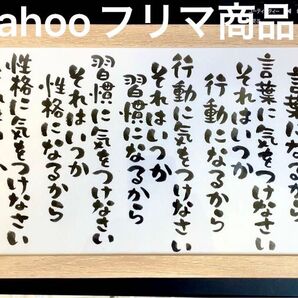 ahoo フリマ商品
言葉になるから
言葉に気をつけなさい
それはいつか
行動になるから
行動に気をつけなさい
それはいつか
習慣になるから
習慣に気をつけなさい
それはいつか
性格になるから
性格に気をつけなさい